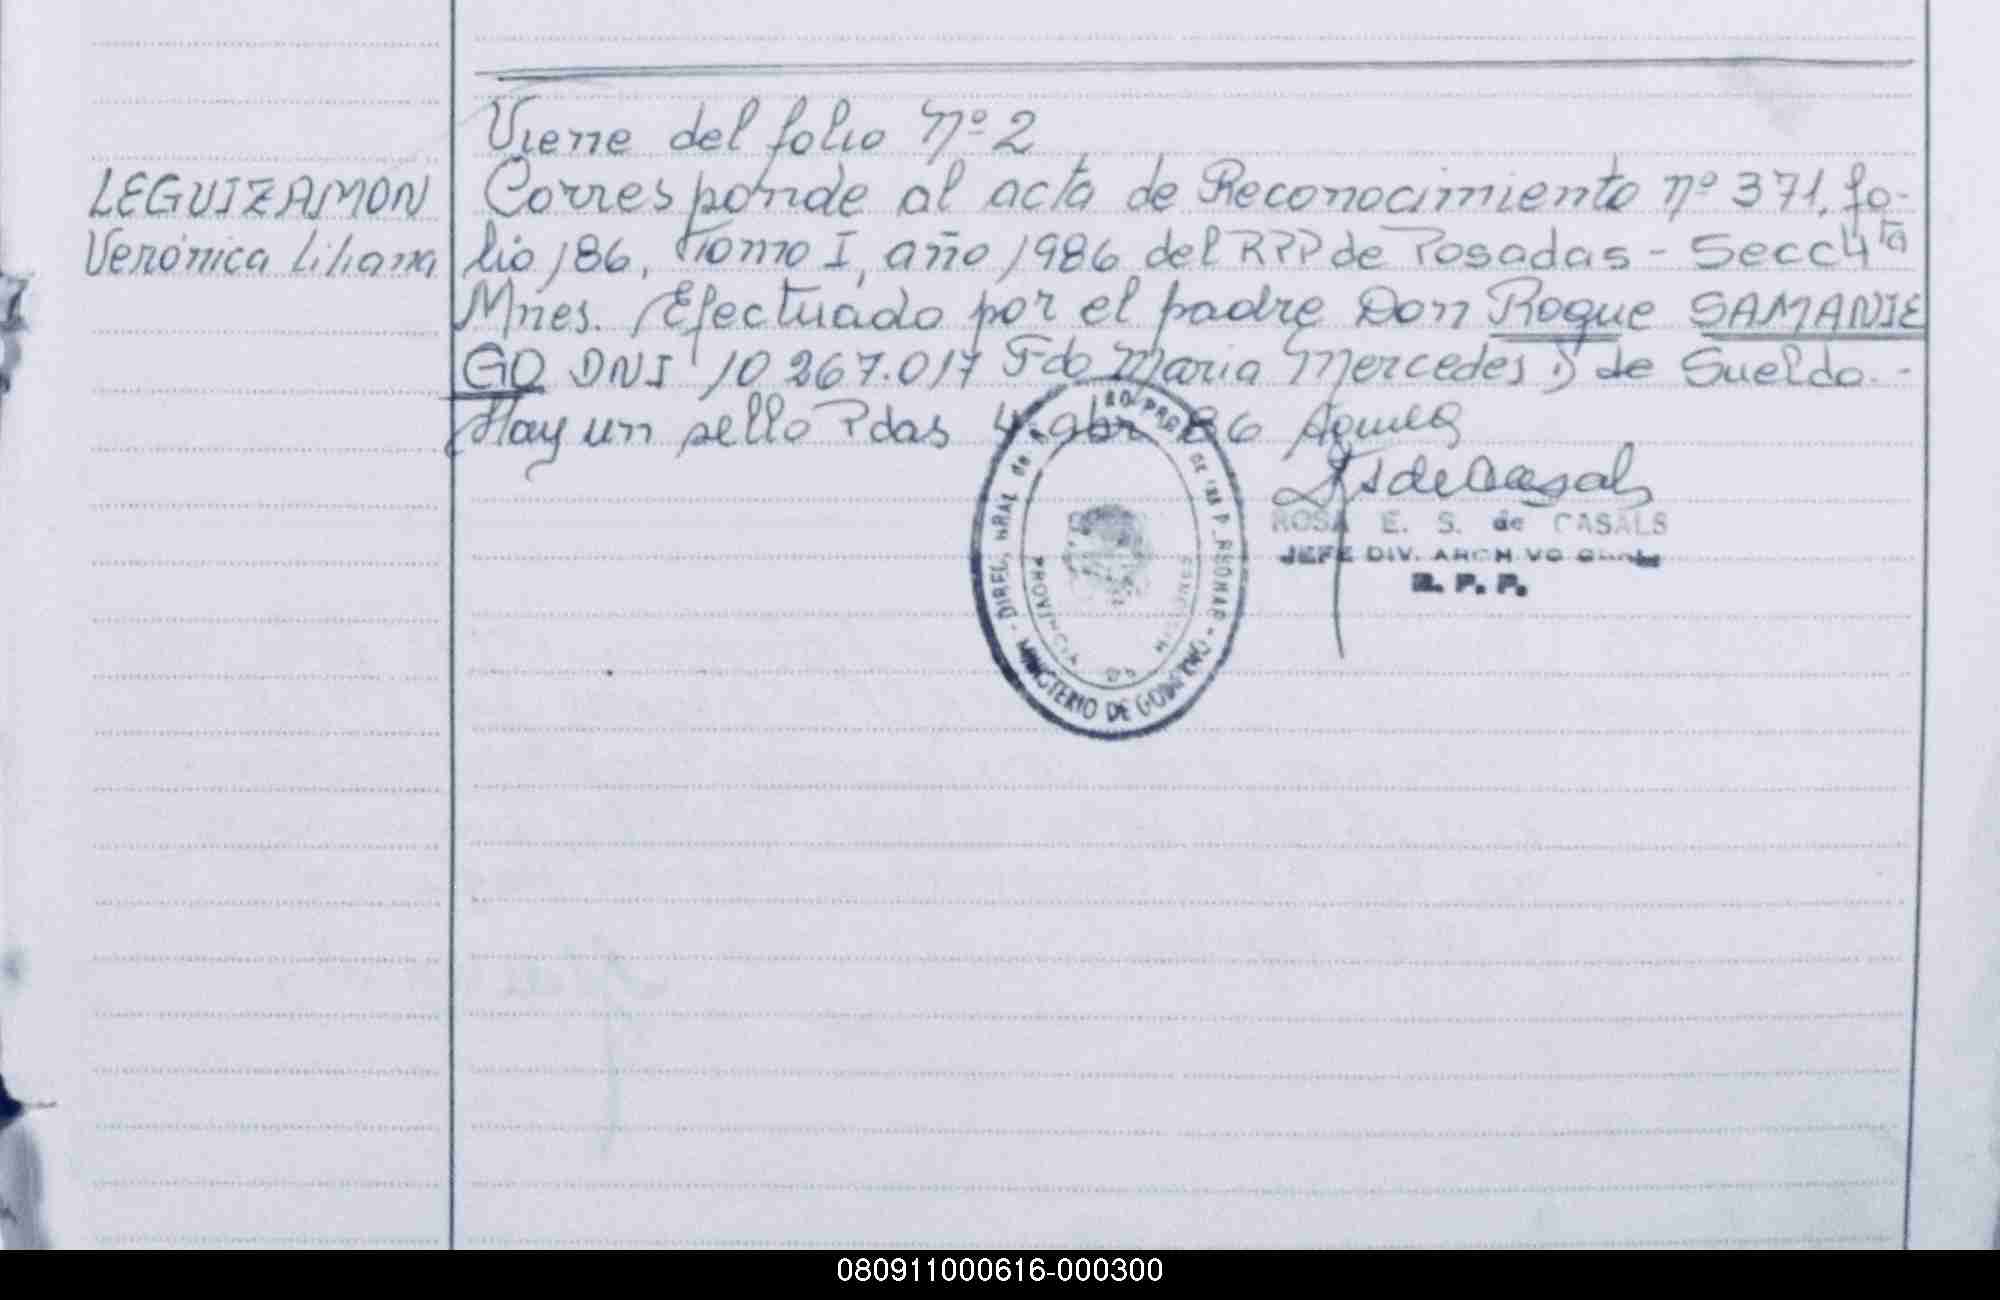 Viene del folio Nº 2
LEGUIZAMON
Verónica Liliana
Corresponde al acta de Reconocimiento nº 371, fo-
lio 186, Tomo I, año 1986 del RPP de Posadas - Secc 4ta
Mnes. Efectuado por el padre Don Roque SAMANIE
GO DNI 10 267.017 Fdo Maria Mercedes D de Sueldo.-
Hay un sello Pdas 4 abr 86
ROSA E. S. de CASALS
JEFE DIV. ARCHIVO
R. P. P.
MINISTERIO DE GOBIERNO
PROVINCIA DE MISIONES
080911000616-000300